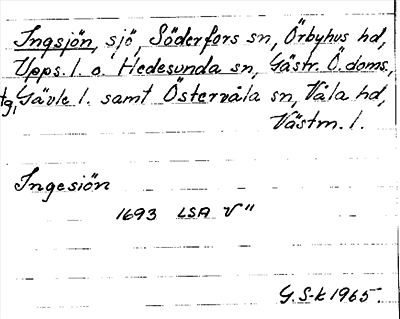 Ingsjön, sjö, Söderfors sn, Örbyhus hd,
Upps. l. o. Hedesunda sn, Gästr. Ö. doms.
tg, Gävle l. samt Östervåla sn, Våla hd,
Västm. l.
Ingesiön
1693 LSA V"
G. S-k 1965.